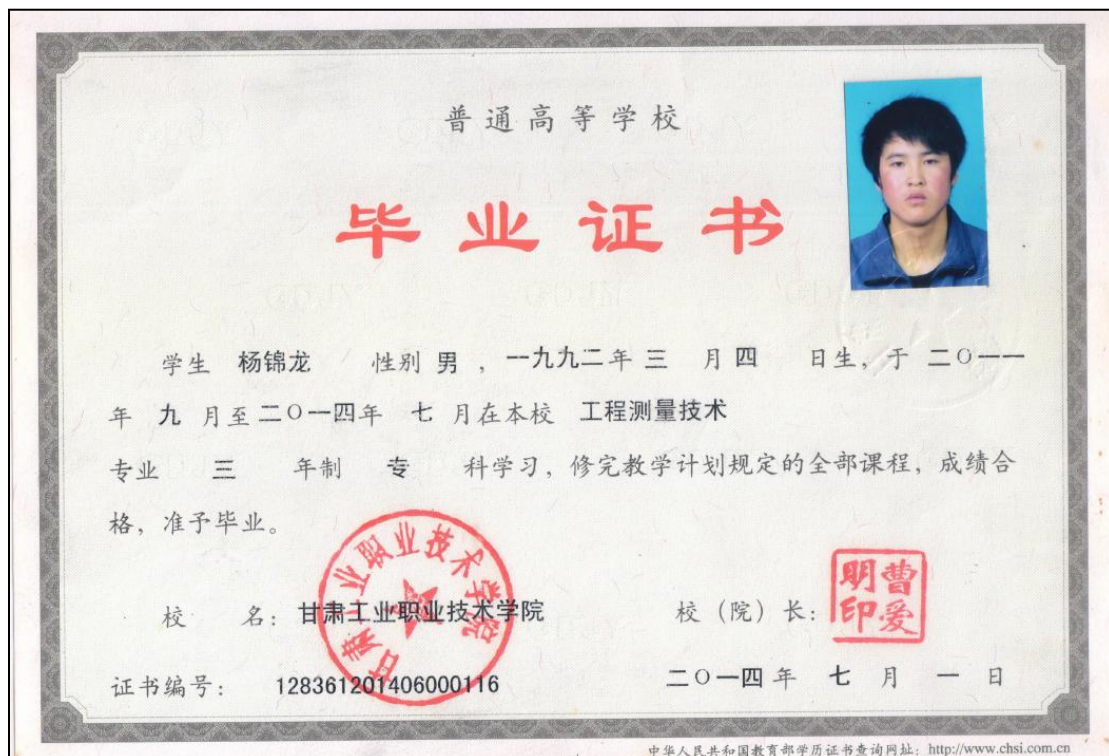 普通高等学校
毕业证书
学生 杨锦龙 性别 男，一九九二年 三 月 四 日生，于 二〇一一
年 九 月至 二〇一四年 七 月在本校 工程测量技术
专业 三 年制 专 科学习，修完教学计划规定的全部课程，成绩合
格，准予毕业。
甘肃工业职业技术学院
校 名：甘肃工业职业技术学院
校（院）长：
曹爱明印
证书编号：128361201406000116
二〇一四年 七 月 一 日
中华人民共和国教育部学历证书查询网址：http://www.chsi.com.cn